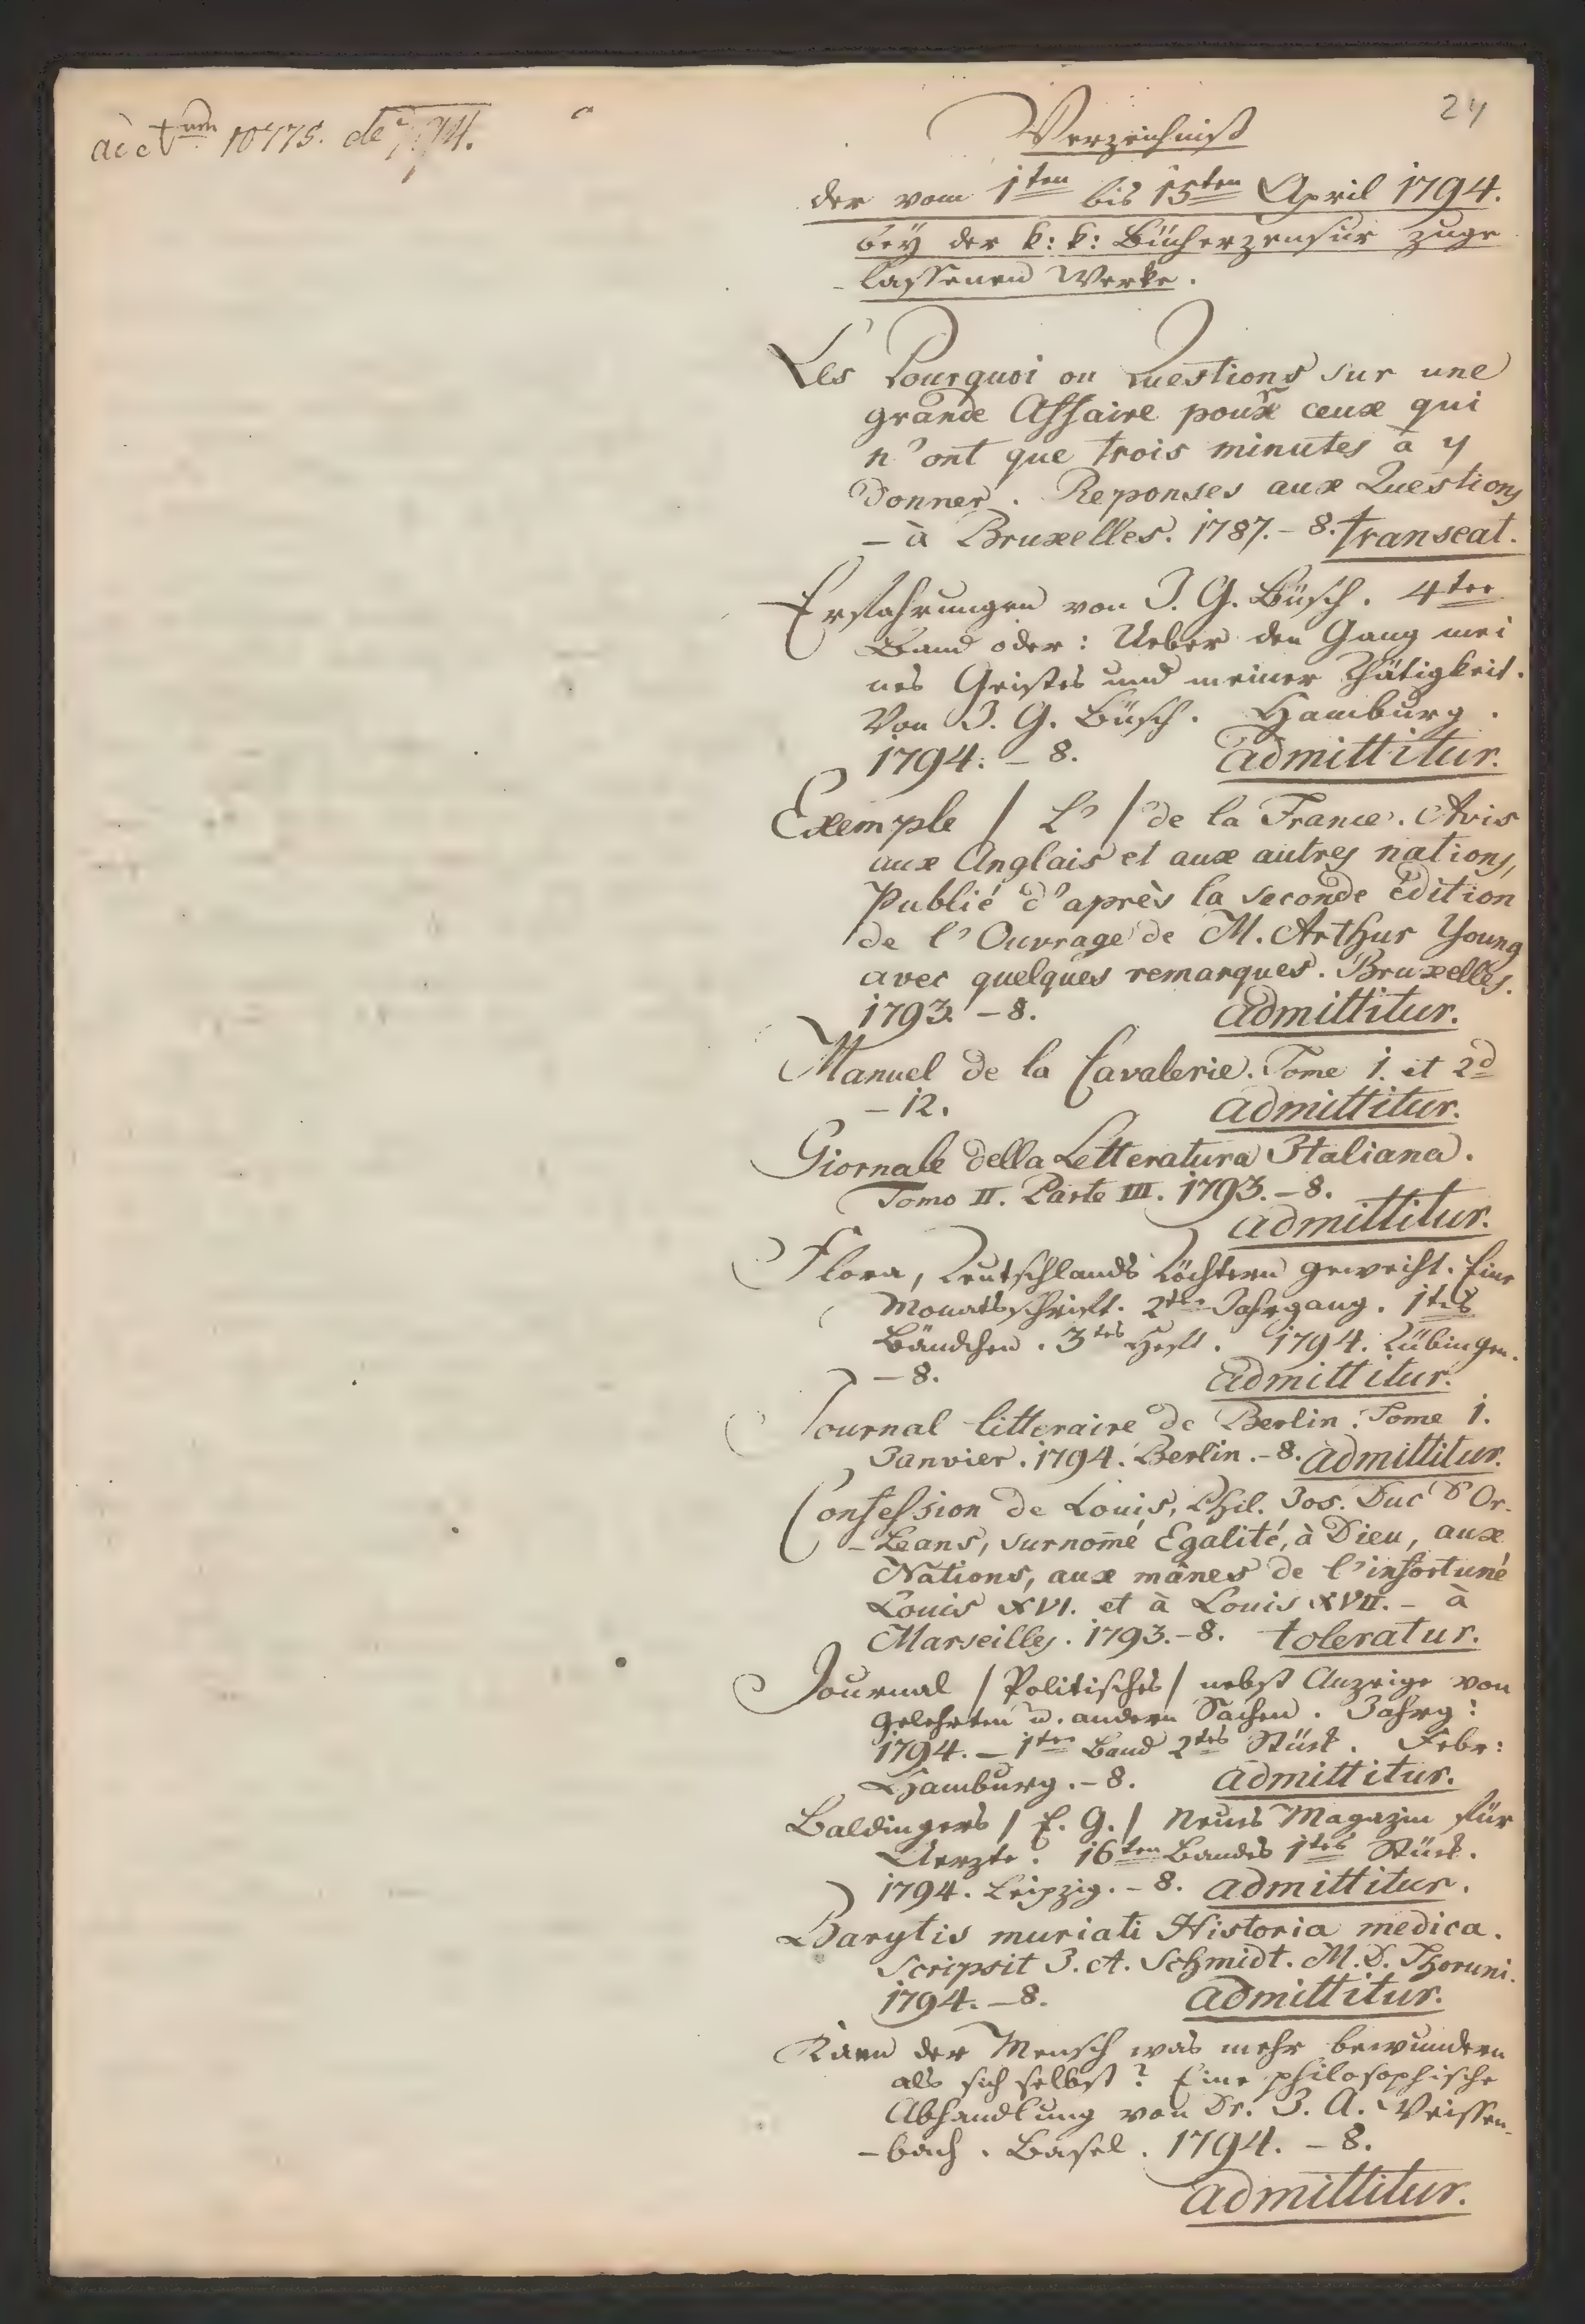 ad Num 10175. de 794.
24
Verzeichniß
der vom 1ten bis 15ten April 1794.
bey der k: k: Bücherzensur zuge
- lassenen Werke.
Les Pourquoi ou Questions sur une
grande Affaire pour ceux qui
n'ont que trois minutes à y
donner. Reponses aux Questions
- à Bruxelles. 1787. - 8. transeat.
Erfahrungen von J. G. Büsch. 4ter
Band oder: Ueber den Gang mei
nes Geistes und meiner Thätigkeit.
Von J. G. Büsch. Hamburg.
1794. - 8. admittitur.
Exemple / L' / de la France. Avis
aux Anglais et aux autres nations,
Publié d'après la seconde édition
de l'Ouvrage de M. Arthur Young
avec quelques remarques. Bruxelles.
1793. - 8. admittitur.
Manuel de la Cavalerie. Tome 1. et 2d
- 12. admittitur.
Giornale della Letteratura Italiana.
Tomo II. Parte III. 1793. - 8.
admittitur.
Flora, Teutschlands Töchtern geweiht. Eine
Monatsschrift. 2ter Jahrgang. 1tes
Bändchen. 3tes Heft. 1794. Tübingen.
- 8. admittitur.
Journal litteraire de Berlin. Tome 1.
Janvier. 1794. Berlin. - 8. admittitur.
Confession de Louis, Phil. Jos. Duc d'Or-
- Leans, surnom̄é Egalité, à Dieu, aux
Nations, aux mânes de l'infortuné
Louis XVI. et à Louis XVII. - à
Marseilles. 1793. - 8. toleratur.
Journal / Politisches / nebst Anzeige von
gelehrten u. andern Sachen. Jahrg:
1794. - 1ter Band 2tes Stück. Febr:
Hamburg. - 8. admittitur.
Baldingers / E. G. / Neues Magazin für
Aerzte. 16ten Bandes 1tes Stück.
1794. Leipzig. - 8. admittitur.
Barytis muriati Historia medica.
Scripsit J. A. Schmidt. M. D. Thoruni.
1794. - 8. admittitur.
Kann der Mensch was mehr bewundern
als sich selbst? Eine philosophische
Abhandlung von Dr. J. A. Weissen-
- bach. Basel. 1794. - 8.
admittitur.